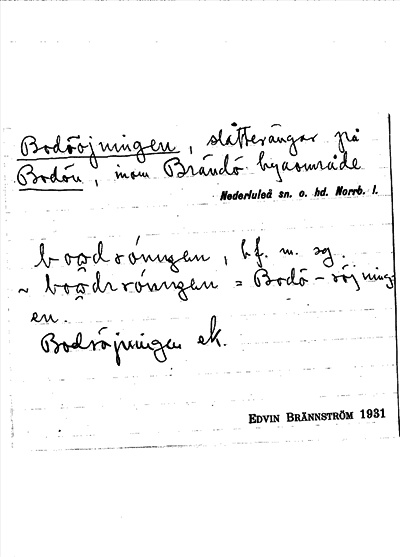 Bodröjningen, slåtterängar på
Bodön, inom Brändö byaområde
Nederluleå sn. o. hd. Norrb. l.
bf. m. sg.
= Bodö-röjning-
en.
Bodröjningen ek.
EDVIN BRÄNNSTRÖM 1931